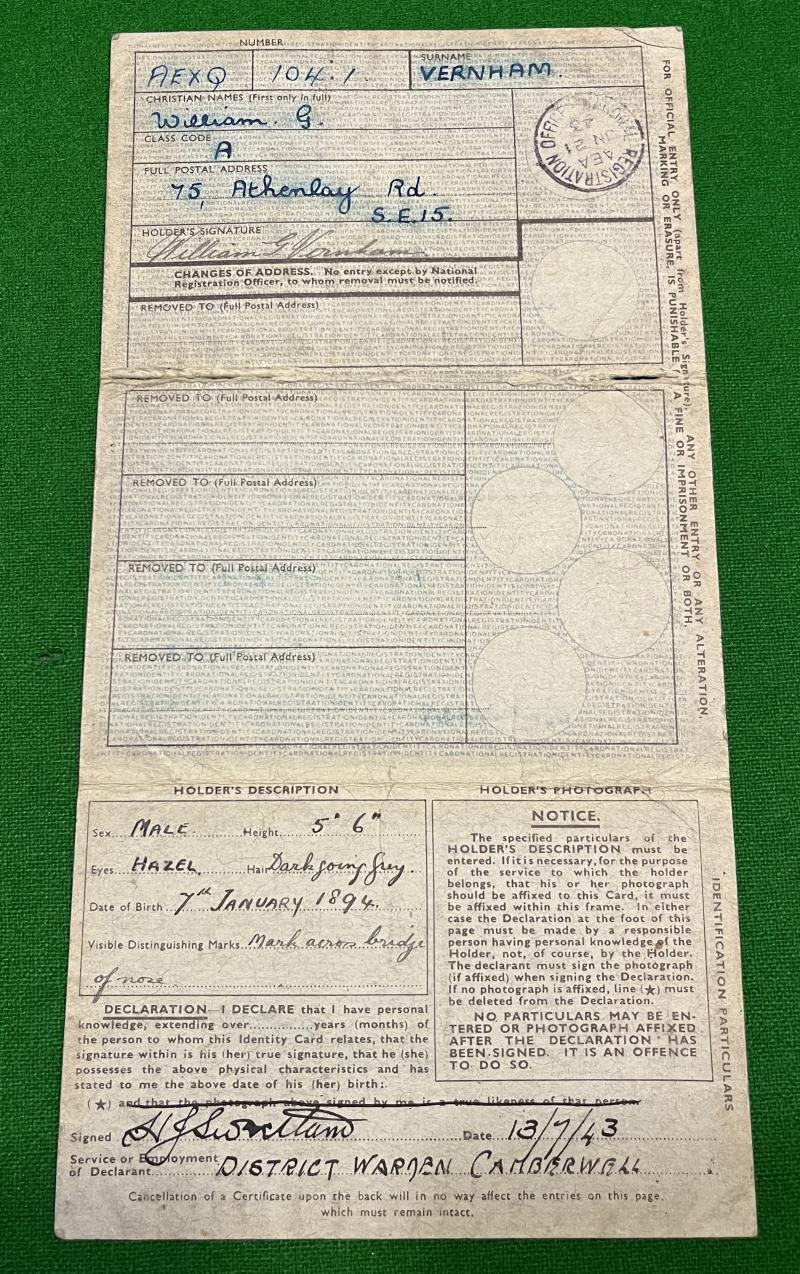 NUMBER
SURNAME
AEXQ 104.1. VERNHAM.
CHRISTIAN NAMES (First only in full)
William. G.
CLASS CODE
A
FULL POSTAL ADDRESS
75, Athenlay Rd
S.E.15.
HOLDER'S SIGNATURE
William G Vernham
CHANGES OF ADDRESS. No entry except by National
Registration Officer, to whom removal must be notified.
REMOVED TO (Full Postal Address)
NATIONAL REGISTRATION OFFICE
AEA 21
IN
43
FOR OFFICIAL ENTRY ONLY (apart from Holder's Signature). ANY OTHER ENTRY OR ANY ALTERATION
MARKING OR ERASURE, IS PUNISHABLE BY A FINE OR IMPRISONMENT OR BOTH.
REMOVED TO (Full Postal Address)
REMOVED TO (Full Postal Address)
REMOVED TO (Full Postal Address)
REMOVED TO (Full Postal Address)
HOLDER'S DESCRIPTION
Sex MALE. Height 5' 6"
Eyes HAZEL. Hair Dark going Grey.
Date of Birth 7th JANUARY 1894.
Visible Distinguishing Marks Mark across bridge
of nose
DECLARATION—I DECLARE that I have personal
knowledge, extending over............years (months) of
the person to whom this Identity Card relates, that the
signature within is his (her) true signature, that he (she)
possesses the above physical characteristics and has
stated to me the above date of his (her) birth:.
(★) and that the photograph above signed by me is a true likeness of that person.
HOLDER'S PHOTOGRAPH
NOTICE.
The specified particulars of the
HOLDER'S DESCRIPTION must be
entered. If it is necessary, for the purpose
of the service to which the holder
belongs, that his or her photograph
should be affixed to this Card, it must
be affixed within this frame. In either
case the Declaration at the foot of this
page must be made by a responsible
person having personal knowledge of the
Holder, not, of course, by the Holder.
The declarant must sign the photograph
(if affixed) when signing the Declaration.
If no photograph is affixed, line (★) must
be deleted from the Declaration.
NO PARTICULARS MAY BE EN-
TERED OR PHOTOGRAPH AFFIXED
AFTER THE DECLARATION HAS
BEEN SIGNED. IT IS AN OFFENCE
TO DO SO.
IDENTIFICATION PARTICULARS
Signed Date 13/7/43
Service or Employment
of Declarant DISTRICT WARDEN CAMBERWELL
Cancellation of a Certificate upon the back will in no way affect the entries on this page,
which must remain intact.